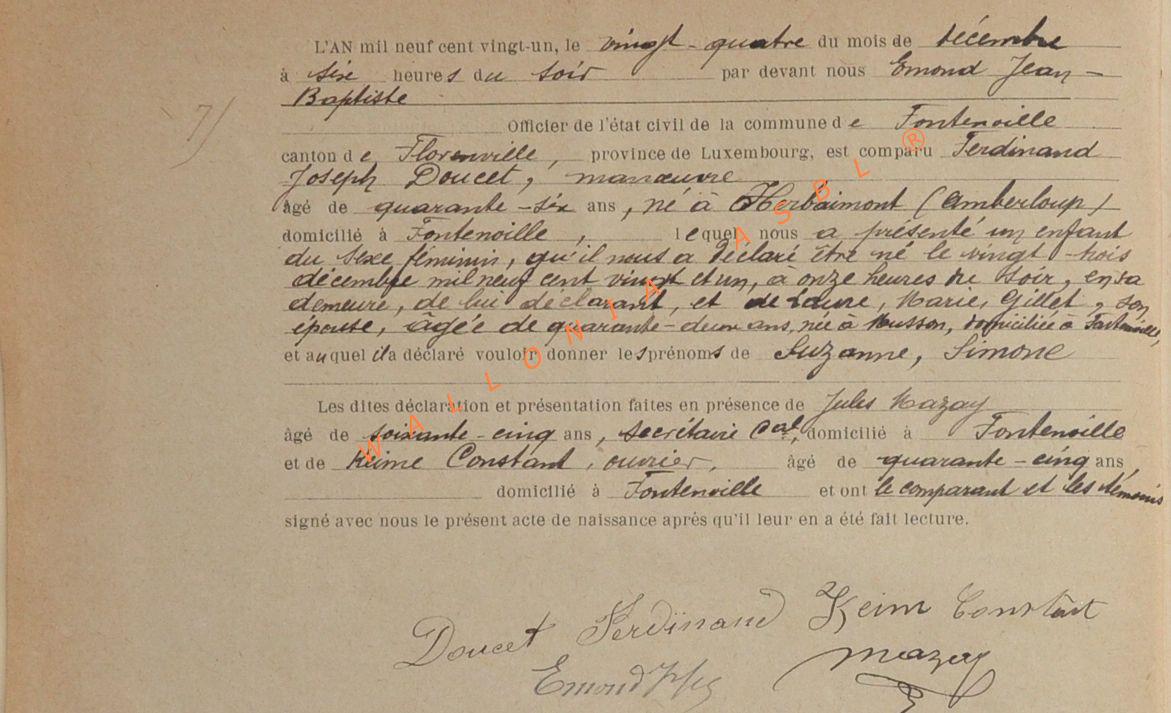 L'AN mil neuf cent vingt-un, le vingt-quatre du mois de décembre
à six heures du soir par devant nous Emond Jean-
Baptiste
7/
Officier de l'état civil de la commune de Fontenoille
canton de Florenville, province de Luxembourg, est comparu Ferdinand
Joseph Doucet, manœuvre
âgé de quarante-six ans, né à Herbaimont (Amberloup)
domicilié à Fontenoille, lequel nous a présenté un enfant
du sexe féminin, qu'il nous a déclaré être né le vingt-trois
décembre mil neuf cent vingt et un, à onze heures du soir, en sa
demeure, de lui déclarant, et de Laure, Marie, Gillet, son
épouse, âgée de quarante-deux ans, née à Musson, domiciliée à Fontenoille,
et auquel il a déclaré vouloir donner les prénoms de Suzanne, Simone
Les dites déclaration et présentation faites en présence de Jules Mazay
âgé de soixante-cinq ans, secrétaire Cal, domicilié à Fontenoille
et de Keime Constant, ouvrier, âgé de quarante-cinq ans,
domicilié à Fontenoille et ont le comparant et les témoins
signé avec nous le présent acte de naissance après qu'il leur en a été fait lecture.
Doucet Ferdinand Keim Constant
Emond mazay
WALLONIA ASBL ®